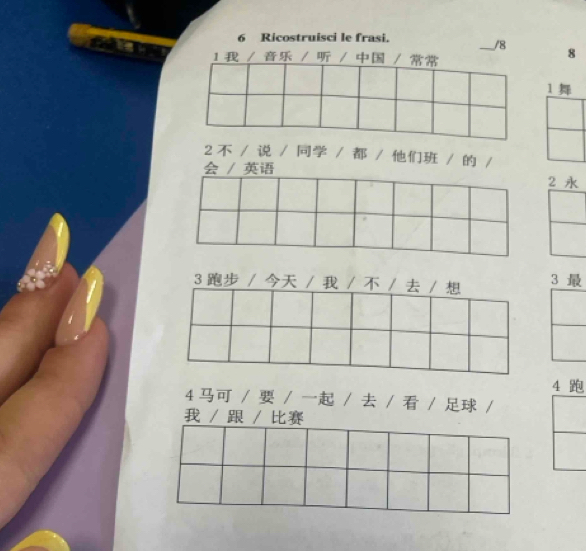 6 Ricostruisci le frasi.
__/8
1 我 / 音乐 / 听 / 中国 / 常常
2 不 / 说 / 同学 / 都 / 他们班 / 的 /
会 / 英语
3 跑步 / 今天 / 我 / 不 / 去 / 想
4 马可 / 要 / 一起 / 去 / 看 / 足球 /
我 / 跟 / 比赛
8
1 舞
2 永
3 最
4 跑